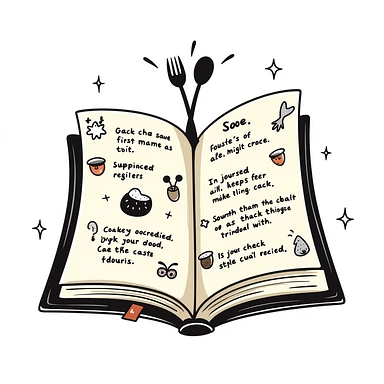 Gack cha save
first mame as
tait.
Suppinced
regilers
Coakey oocredied,
your dood,
Cae the caste
fdouris.
Sooe.
Fouste's of
ale, miglt croce.
In joursed
aill, keeps feer
make tling cack,
Sounth tham the cbalt
op as thack thigse
trindoal with.
Is jour check
style cual recied,